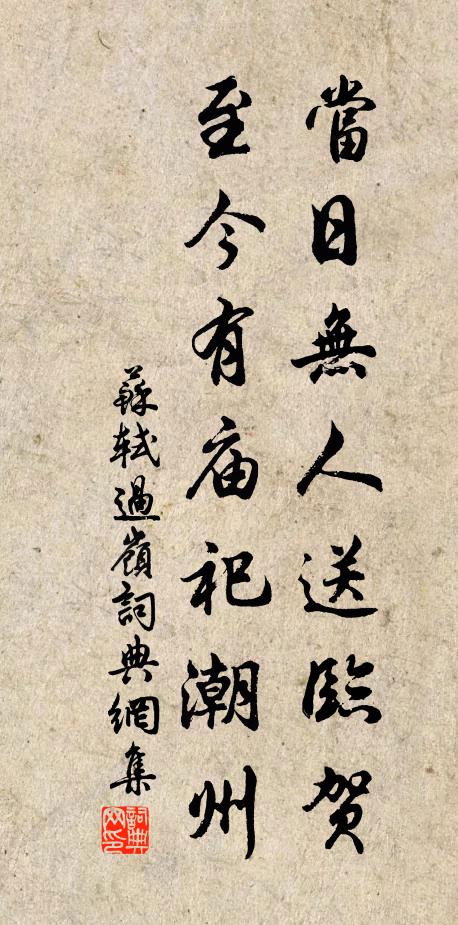 當日無人送臨賀
至今有庙祀潮州
蘇軾過嶺詞典網集
詞典網印